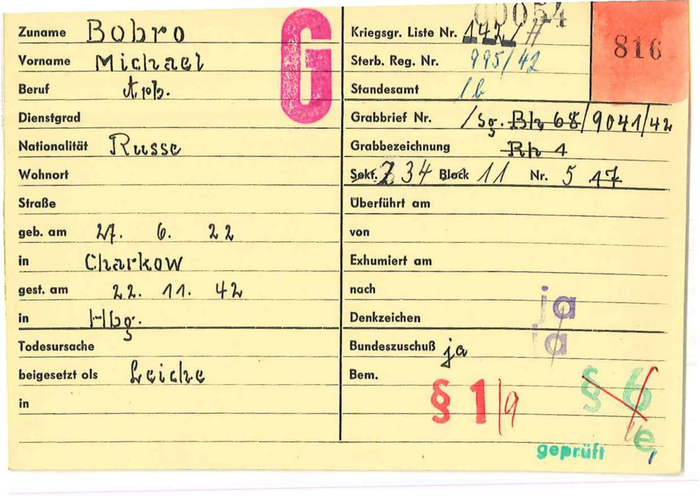 Zuname Bobro
Vorname Michael
Beruf Arb.
Dienstgrad
Nationalität Russe
Wohnort
Straße
geb. am 27. 6. 22
in Charkow
gest. am 22. 11. 42
in Hbg.
Todesursache
beigesetzt als Leiche
in
G
00054
Kriegsgr. Liste Nr. 142/#
816
Sterb. Reg. Nr. 995/42
Standesamt 1b
Grabbrief Nr. /Sg. Bh 68/9041/42
Grabbezeichnung Rh 1
Sekt. Z 34 Block 11 Nr. 5 17
Überführt am
von
Exhumiert am
nach
ja
Denkzeichen
ja
Bundeszuschuß ja
Bem.
§ 1/9 § 6
e
geprüft